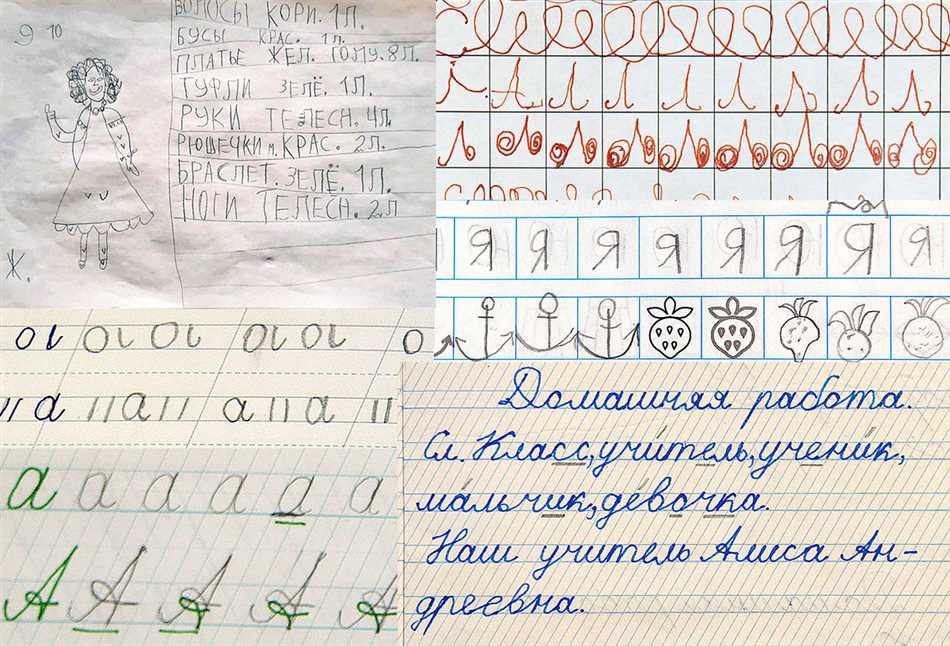 9 10
ВОЛОСЫ КОРИ. 1Л.
БУСЫ КРАС. 1Л.
ПЛАТЬЕ ЖЕЛ. ГОЛУ. 8Л.
ТУФЛИ ЗЕЛЁ. 1Л.
РУКИ ТЕЛЕСН. 4Л.
РЮШЕЧКИ М. КРАС. 2Л.
БРАСЛЕТ. ЗЕЛЁ. 1Л.
НОГИ ТЕЛЕСН. 2Л
Ж.
Я Я Я Я Я Я Я Я
а а а а а а
А А А А А
Домашняя работа.
Сл. Класс, учитель, ученик,
мальчик, девочка.
Наш учитель Алиса Ан-
дреевна.